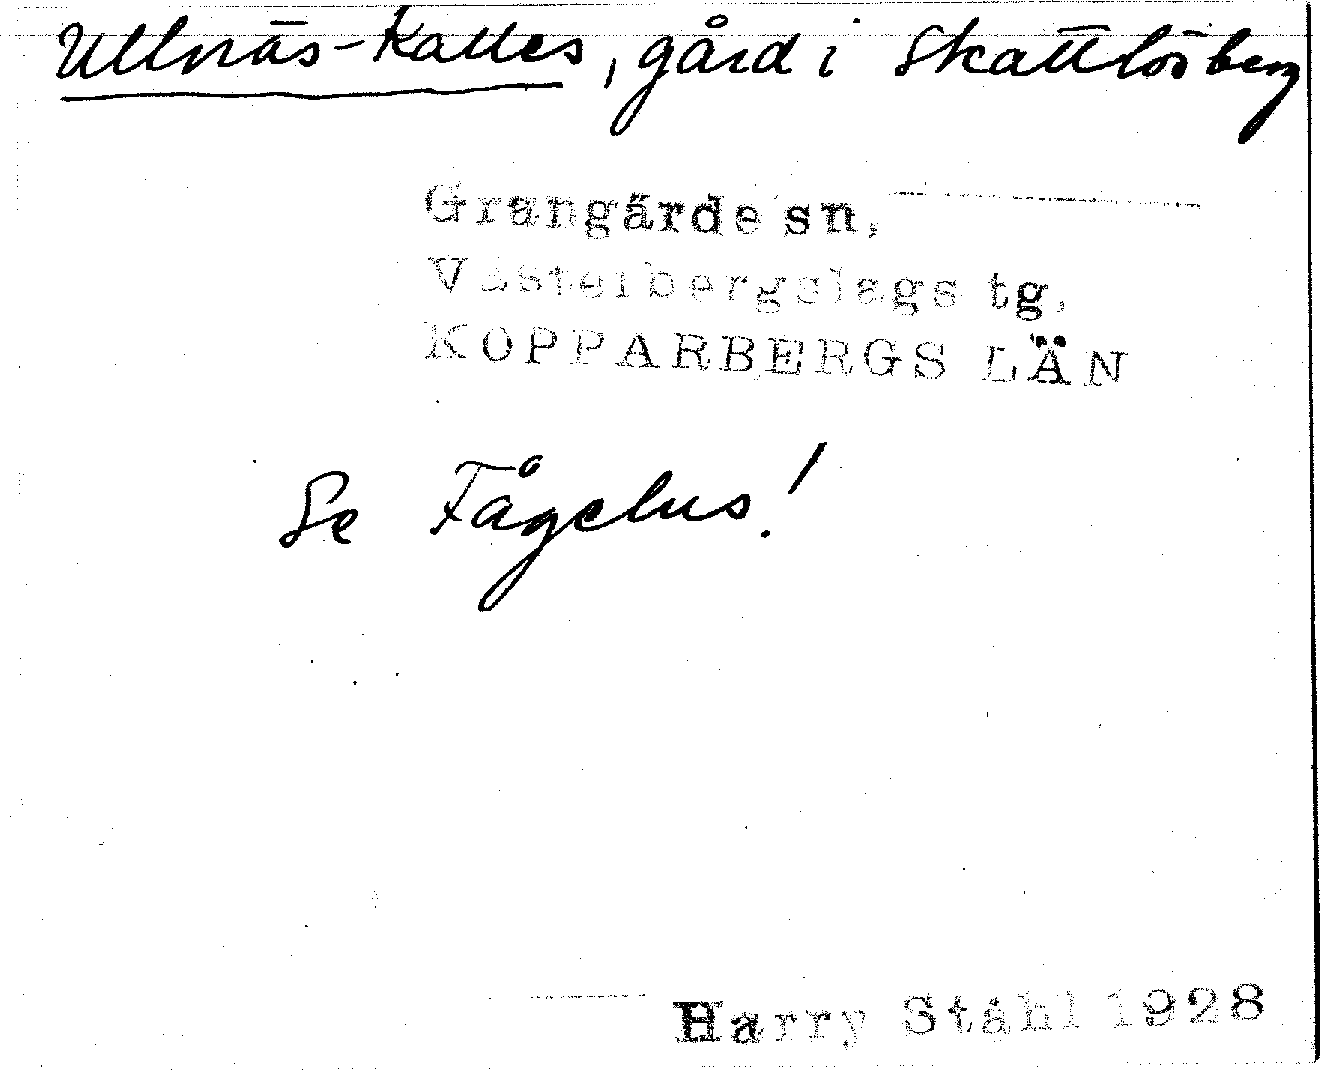 Ullnäs-Kalles, gård i Skattlösberg
Grangärde sn,
Västerbergslags tg.
KOPPARBERGS LÄN
Se Fågelns!
Harry Ståhl 1928